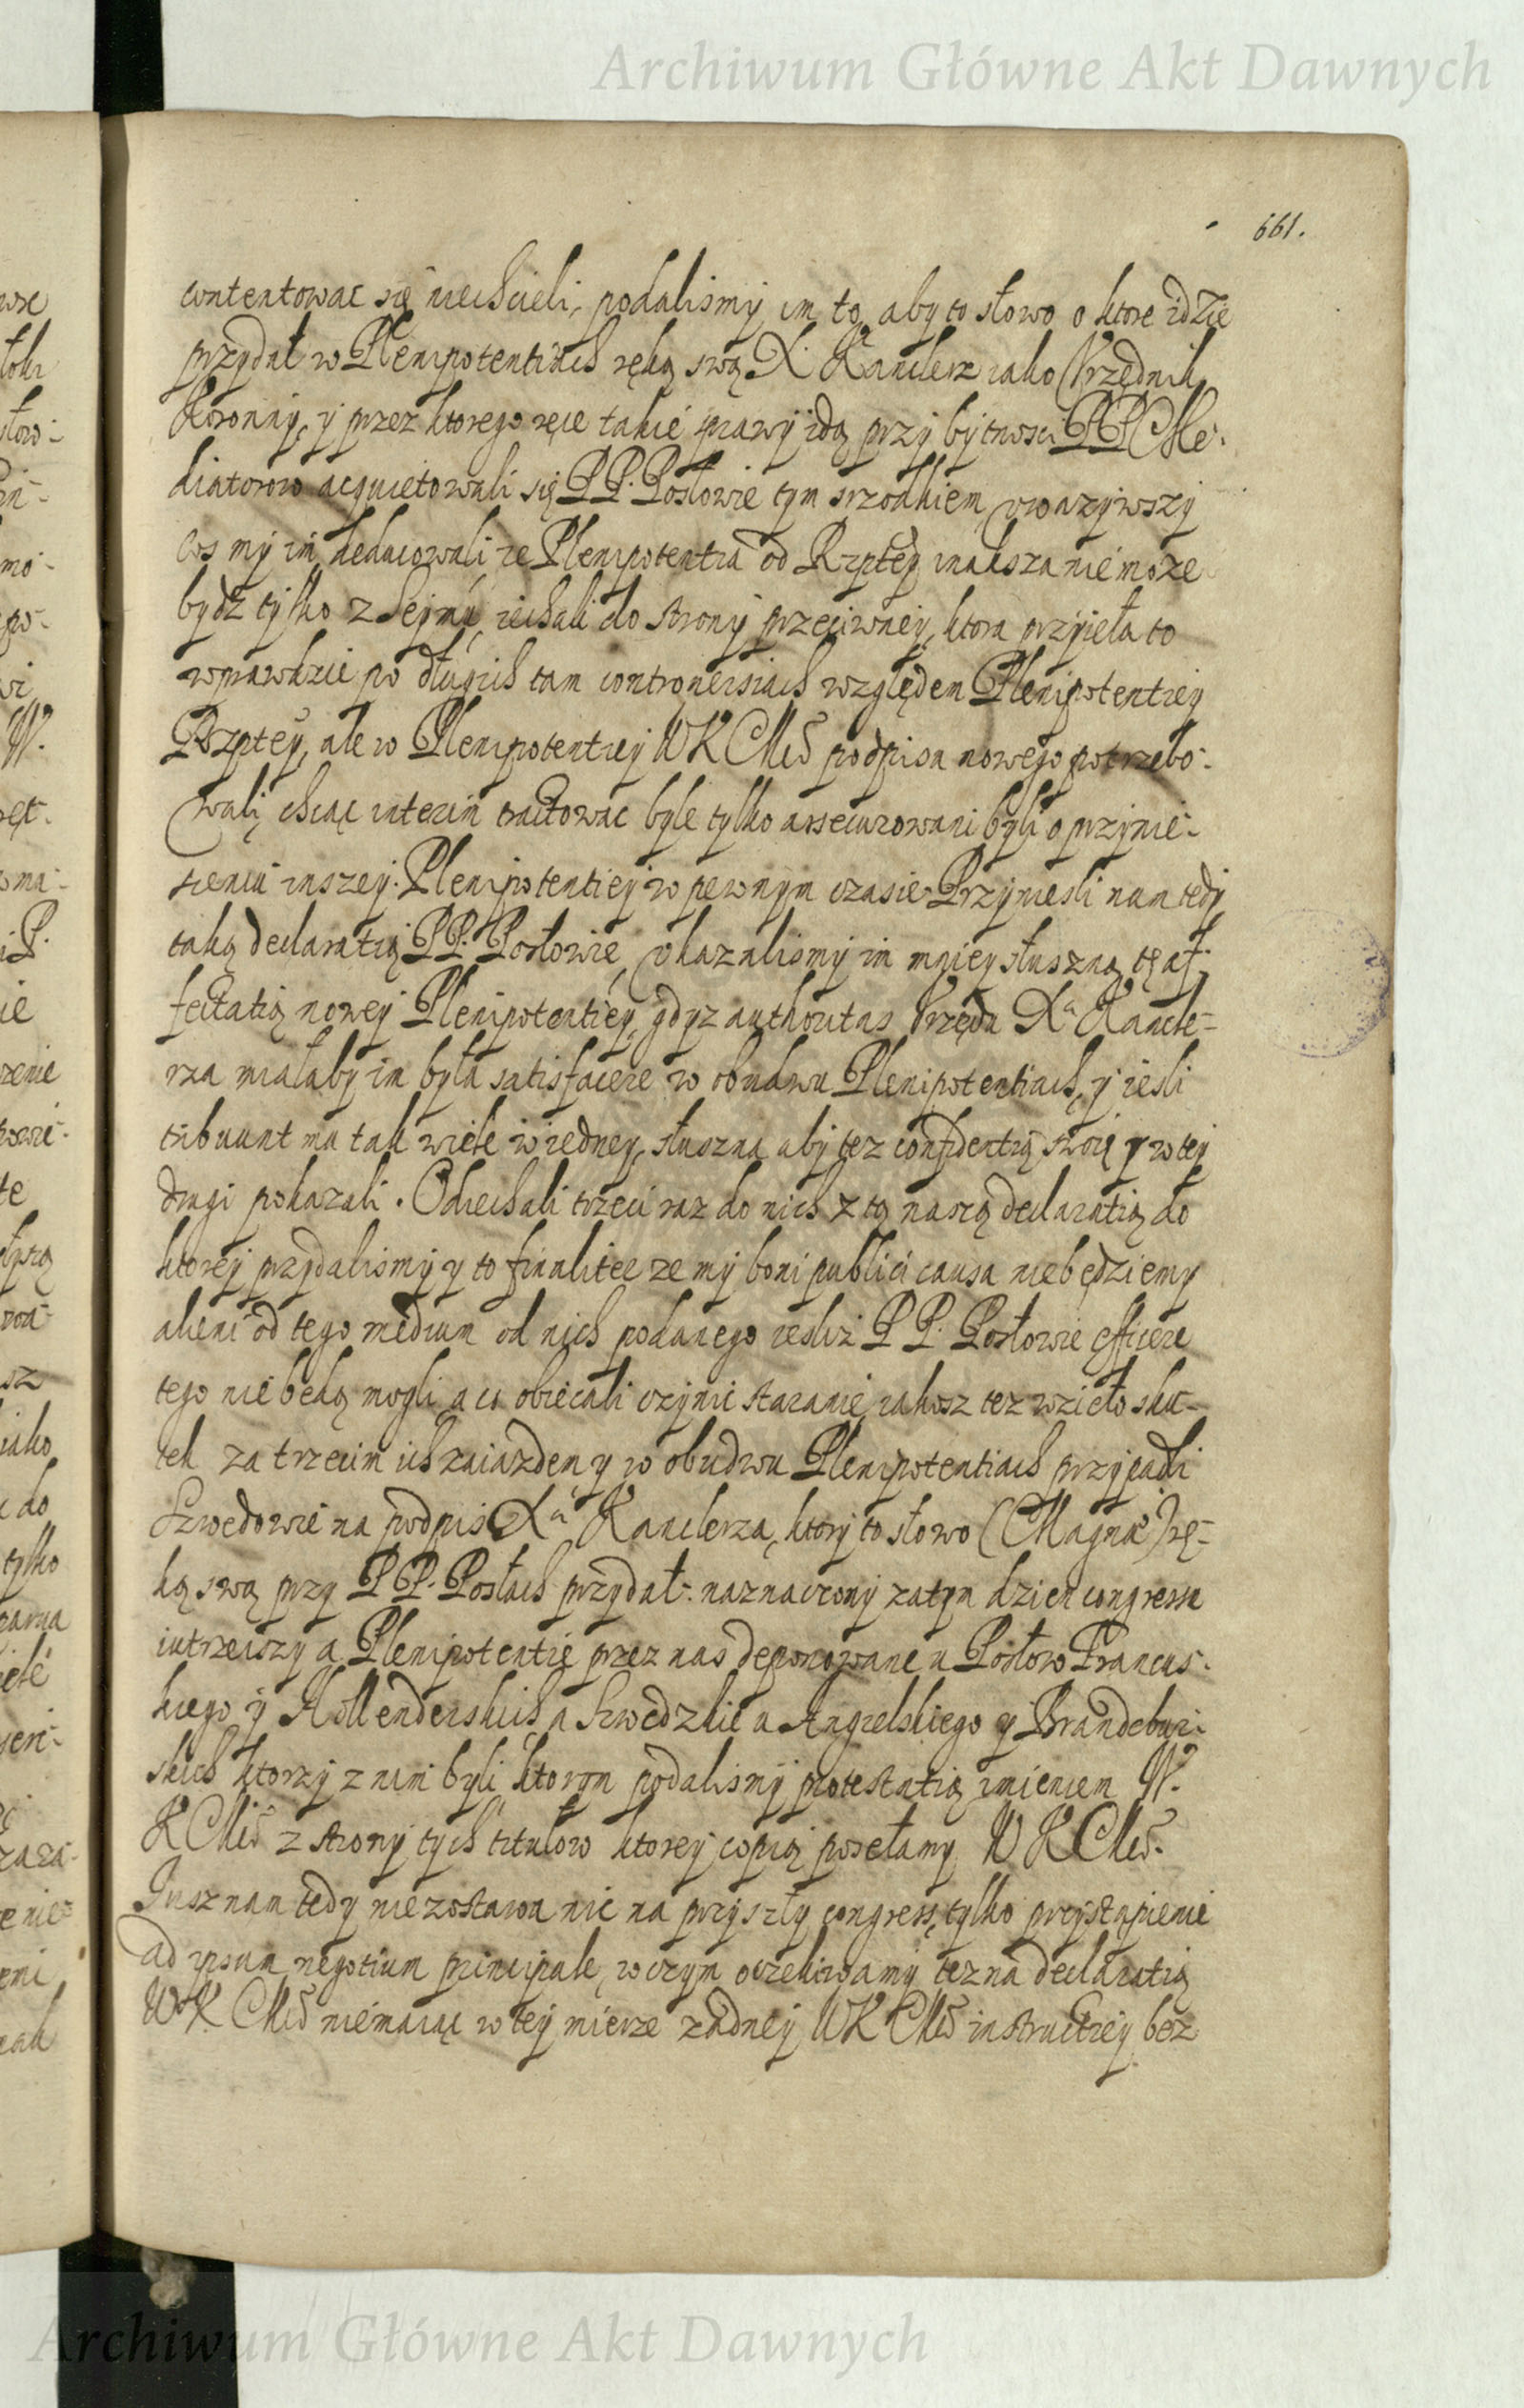 Archiwum Główne Akt Dawnych
661.
contentowac się niechcieli, podalismy im to, aby to słowo o ktore idzie
przydał w Plenipotentiach ręką swą X. Kanclerz iako Vrzędnik
Koronny, y przez ktorego ręce takie sprawy idą przy bytnosci PP Me-
diatorow acquietowali się PP. Posłowie tym srzodkiem, vwazywszy
cos my im deducowali ze Plenipotentia od Rzptey inaksza nie moze
bydz tylko z Sejmu, iechali do strony przeciwney, ktora przyieła to
wprawdzie po długich tam controuersiach względem Plenipotentiey
Rzptey, ale w Plenipotentiey WKMci podpisu nowego potrzebo-
wali, chcąc interim tractowac byle tylko assecurowani byli o przynie-
sieniu inszey Plenipotentiey w pewnym czasie. Przyniesli nam tedy
taką declaratią PP. Posłowie, vkazalismy im mniey słuszną tę af-
fectatią nowey Plenipotentiey, gdyz authoritas Vrzędu Xa Kancle-
rza miałaby im była satisfacere w obudwu Plenipotentiach, y iesli
tribuunt mu tak wiele w iedney, słuszna aby tez confidentią swoię y w tey
drugi pokazali. Odiechali trzeci raz do nich z tą naszą declaratią do
ktorey przydalismy y to finaliter ze my boni publici causa niebędziemy
alieni od tego medium od nich podanego iesliz PP. Posłowie efficere
tego nie będą mogli, a co obiecali czynic staranie, iakosz tez wzięło sku-
tek za trzecim ich zaiazdem y w obudwu Plenipotentiach przypadli
Szwedowie na podpis Xa Kanclerza, ktory to słowo (Magnæ) rę-
ką swą przy PP. Posłach przydał: naznaczony zatym dzien congressu
iutrzeiszy a Plenipotentie przez nas deponowane u Posłow Francus-
kiego y Hollenderskich, a Szwedzkie u Angielskiego y Brandebur-
skich ktorzy z nimi byli, ktorym podalismy protestatią imieniem W.
KMci z strony tych titulow ktorey copią posełamy W K Mci.
Jusz nam tedy niezostawa nic na przyszły congress, tylko przystąpienie
ad ipsum negotium principale, w czym oczekiwamy tez na declaratią
WK Mci niemaiąc w tey mierze zadney WK Mci instructiey bez
Archiwum Główne Akt Dawnych